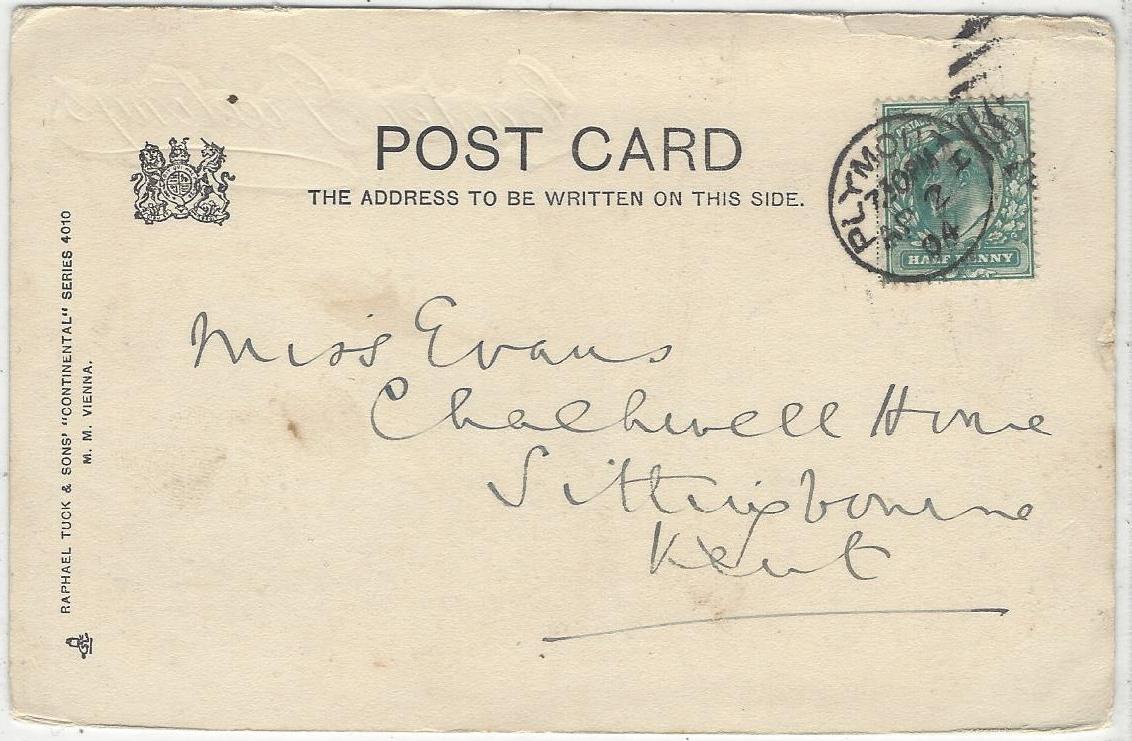 POST CARD
THE ADDRESS TO BE WRITTEN ON THIS SIDE.
PLYMOUTH
7 30 PM
AP 2
04
HALFPENNY
Miss Evans
Chalkwell House
Sittingbourne
Kent
RAPHAEL TUCK & SONS' "CONTINENTAL" SERIES 4010
M. M. VIENNA.